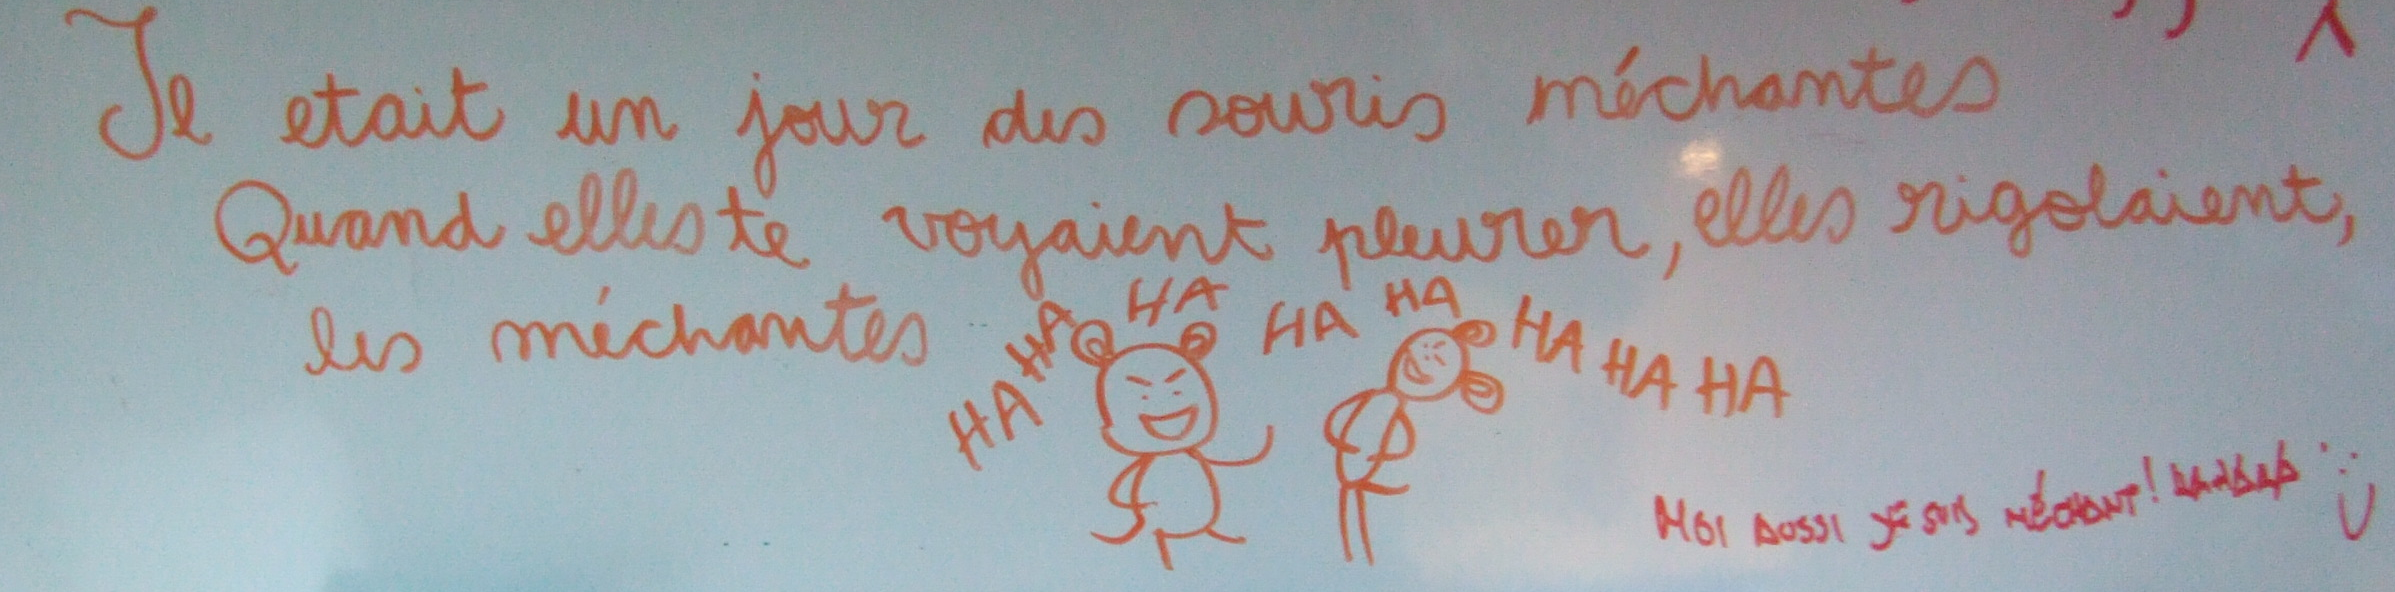 Il etait un jour des souris méchantes
Quand elles te voyaient pleurer, elles rigolaient,
les méchantes
HA HA HA HA HA HA HA HA
MOI AUSSI JE SUIS MÉCHANT!